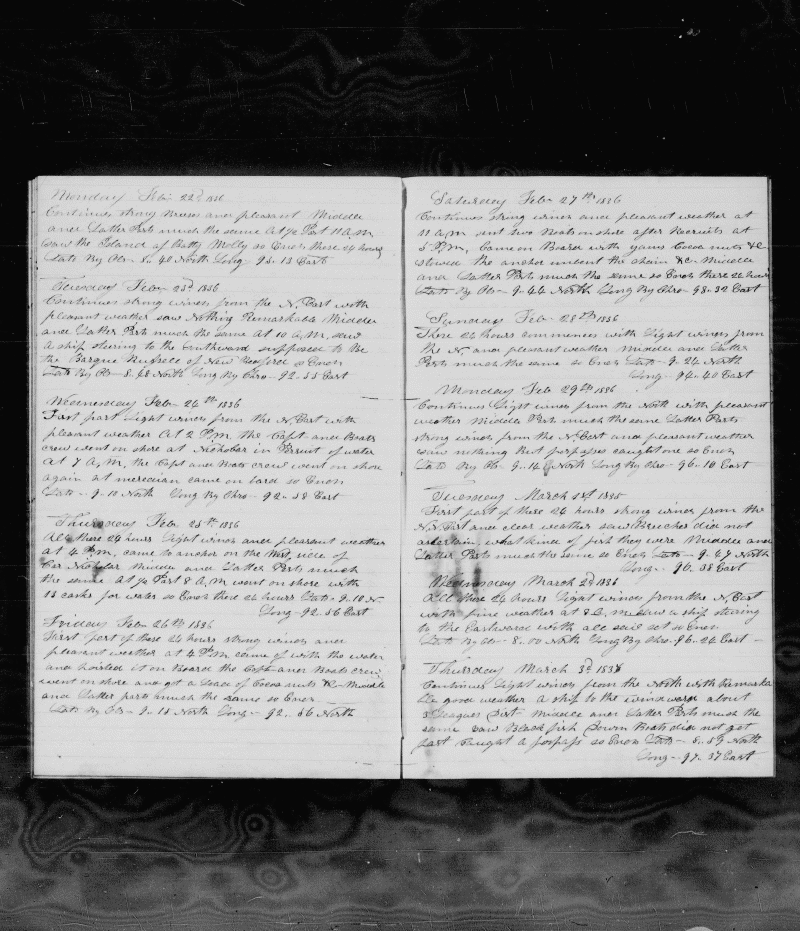 Monday Feb 22d 1836
Continues strong breeses and pleasant Middle
and Latter Parts much the same At ½ Past 11 A M
Saw the Island of Batty Molly so Ends these 24 hours
Lat By Ob- 8..40 North Long 93..13 East
Tuesday Feb- 23d 1836
Continues strong winds from the N, East with
pleasant weather saw Nothing Remarkable Middle
and Latter Parts much the same At 10 A,M, saw
a ship stering to the Southward supposed to Be
the Barque of New Bedford so Ends
Lat By Ob- 8..48 North Long By Chro- 92..55 East
Wednesday Feb- 24th 1836
First part Light winds from the N, East with
pleasant weather At 2 P,M the Capt and Boats
crew went on shore at Nichobar in Persuit of water
at 7 A,M, the Capt and Boats crew went on shore
again at meredian came on bord so Ends
Lat- 9..10 North Long By Chro- 92..58 East
Thursday Feb 25th 1836
All these 24 hours Light winds and pleasant weather
at 4 P,m, came to anchor on the West, side of
Car Nichobar Middle and Latter Parts much
the same At ½ Past 8 A,M went on shore with
13 casks for water so Ends these 24 hours Lat- 9..10 N-
Long- 92..56 East
Friday Feb- 26th 1836
First part of these 24 hours strong winds and
pleasant weather at 4 P,M came of with the water
and hoisted it on Board the Capt- and Boats crew
went on shore and got a Load of Cocoa nuts &C- Middle
and Latter parts much the same so Ends
Lat By Ob- 9..15 North Long- 92..56 North
Saturday Feb- 27th 1836
Continues strong winds and pleasant weather at
11 A,M, sent two Boats on shore after Recruits at
5 P,M, Came on Board with yams Cocoa nuts &C
stowed the anchor unbent the chain &C- Middle
and Latter Parts much the same so Ends these 24 hours
Lat- By Ob- 9..44 North Long By Chro- 93..32 East
Sunday Feb- 28th 1836
These 24 hours commences with Light winds from
the N, and pleasant weather Middle and Latter
Parts much the same so Ends Lat- 9..24 North
Long- 94..40 East
Monday Feb 29th 1836
Continues Light winds from the North with pleasant
weather Middle Parts much the same Latter Parts
strong winds from the N, East and pleasant weather
saw nothing But porpases caught one so Ends
Lat By Ob- 9..14 North Long By Chro- 96..10 East
Tuesday March 1st 1836
First part of these 24 hours strong winds from the
N, East and clear weather saw Breeches did not
assertain what kind of fish they were Middle and
Latter Parts much the same so Ends Lat- 9..47 North
Long- 96..38 East
Wednsday March 2d 1836
All these 24 hours Light winds from the N, East
with fine weather at 8 A, m saw a ship stering
to the Eastward with all sail set so Ends
Lat By Ob- 8..00 North Long By Chro- 96..24 East-
Thursday March 3d 1836
Continues Light winds from the North with Remarka
ble good weather a ship to the windward about
3 Leagues Dist Middle and Latter Parts much the
same saw Black fish Down Boats did not get
fast Caught a porpass so Ends Lat- 8..59 North
Long- 97..37 East